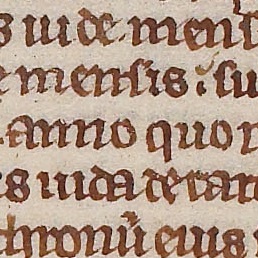 s iude mens
e mensis. su
anno quo r
es iuda detra
thronū eius